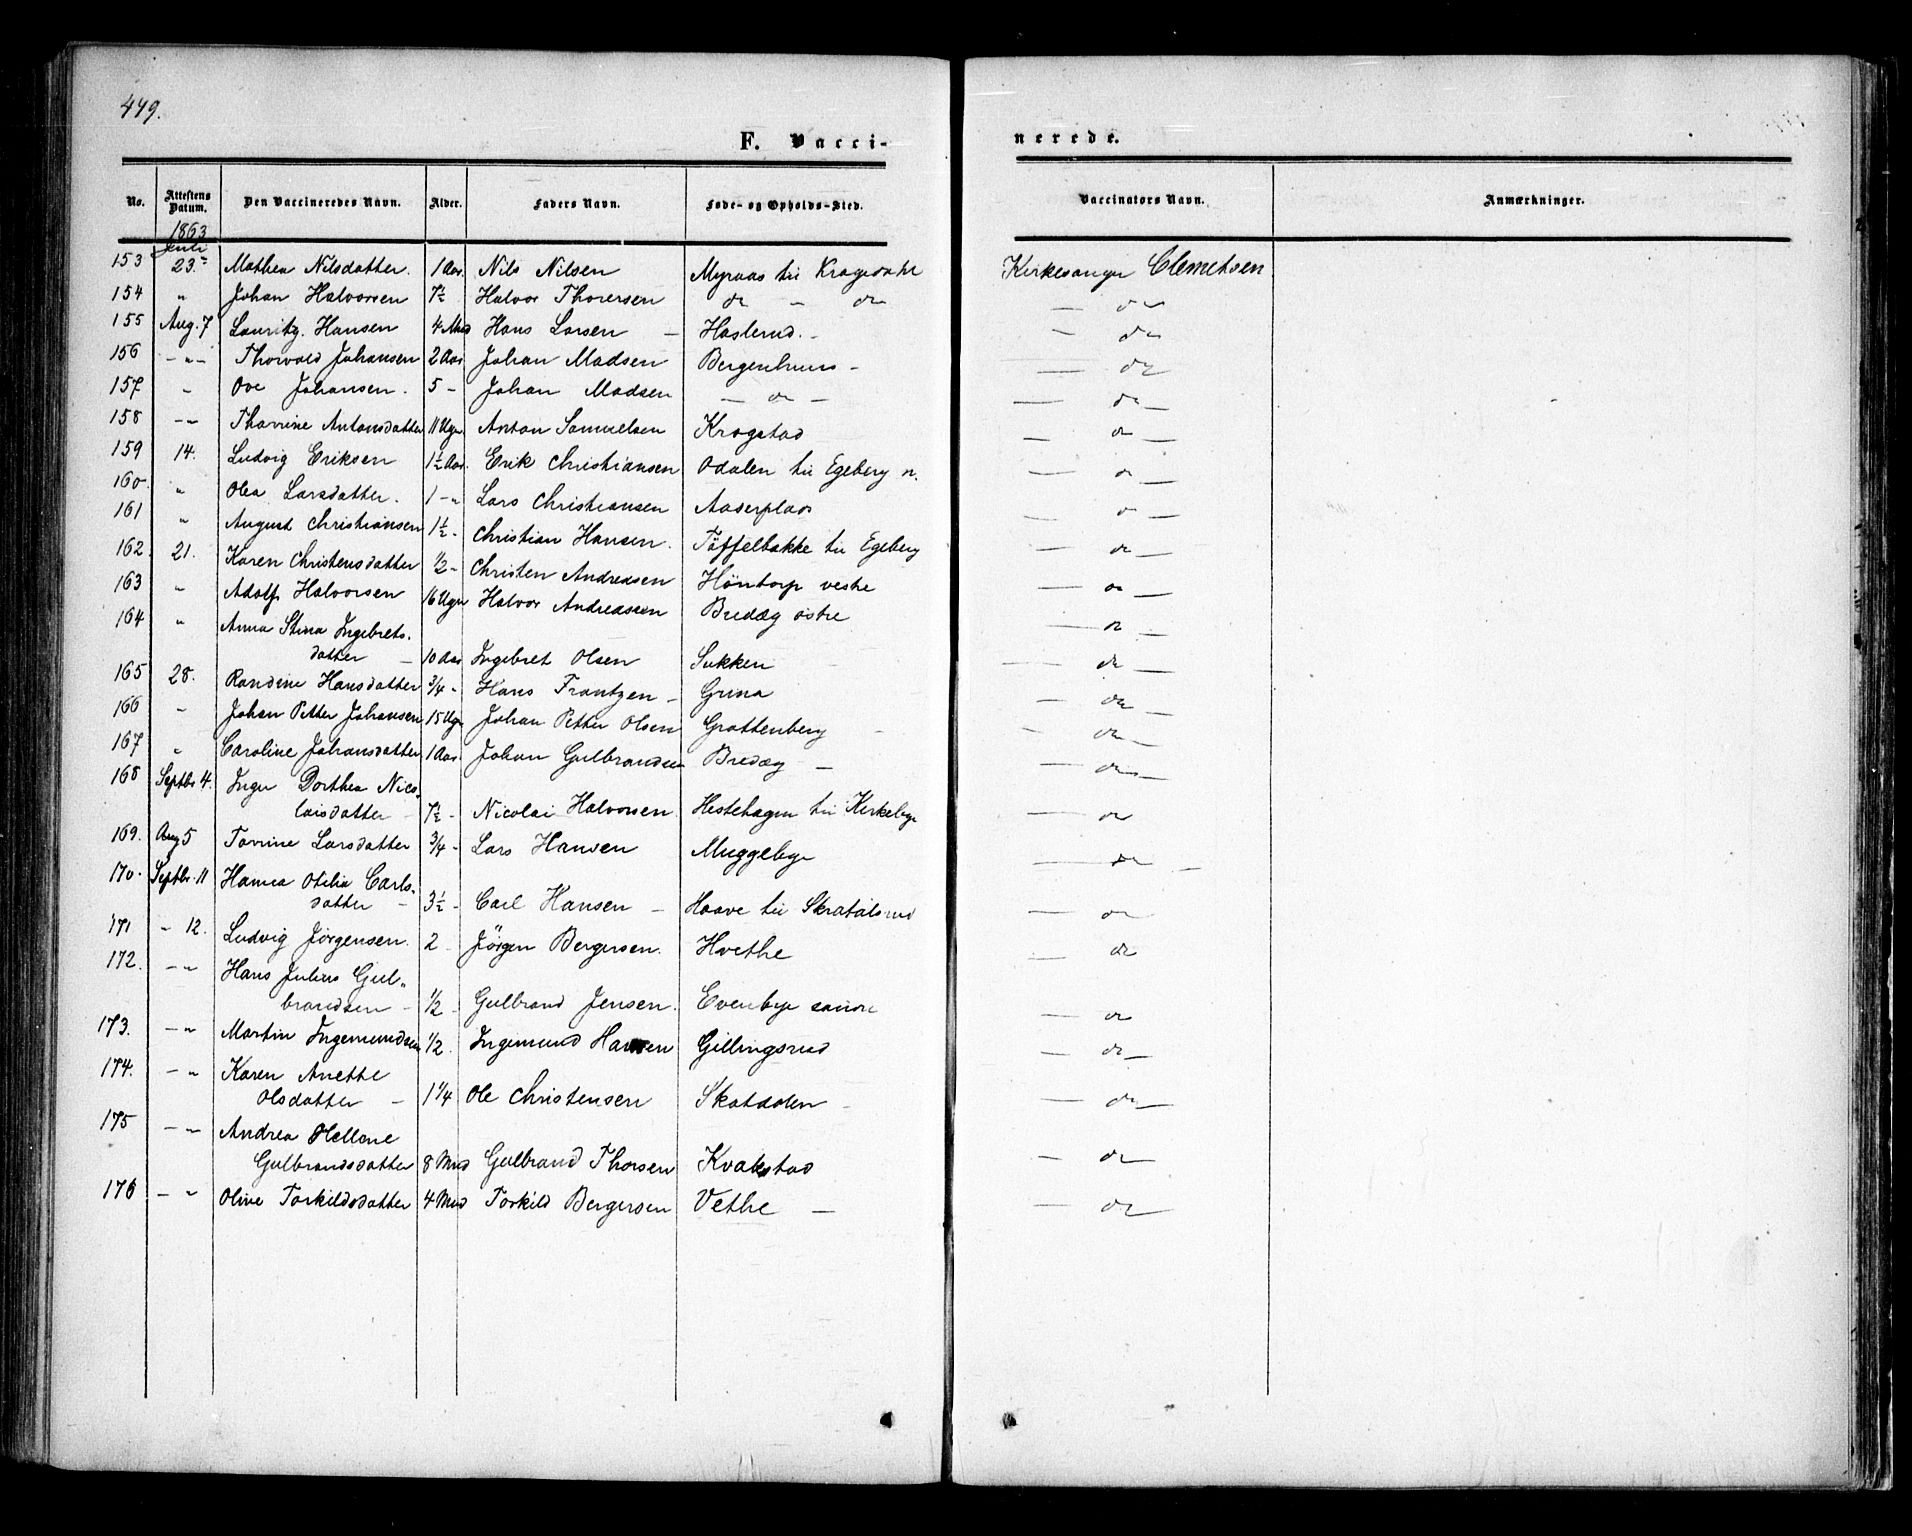 449.
F. Vacci-
nerede.
No. Attestens Datum. Den Vaccineredes Navn. Alder. Faders Navn. Føde- og Opholds-Sted. Vaccinators Navn. Anmærkninger.
1863
Juli
153 23. Mathea Nilsdatter. 1 Aar. Nils Nilsen Myraas til Kragsdahl Kirkesanger Clemetsen
154 " Johan Halvorsen 7½ Halvor Thorersen do - do — do
155 Aug. 7 Lauritz Hansen 4 Mnd Hans Larsen — Haslerud. — do
156 - " - Thorvald Johansen 2 Aar Johan Madsen Bergenhuus - — do
157 " Ove Johansen. 5 - Johan Madsen — do — — do —
158 - " Thorine Antonsdatter 11 Ugr Anton Samuelsen Krogstad — do —
159 14. Ludvig Eriksen 1½ Aar. Erik Christiansen Odalen til Egeberg n. — do —
160. " Olea Larsdatter. 1 - " Lars Christiansen Aaserplads — do —
161 " August Christiansen 1½ - Christian Hansen. Tøffelbakke til Egeberg — do —
162 21. Karen Christensdatter ½ - Christen Andreasen Høntorp vestre — do —
163 " Adolf Halvorsen 16 Ugr Halvor Andreasen Bredæg østre — do —
164 " Anna Stina Ingebrets-
datter — 10 Aar Ingebret Olsen Sukken — do —
165 28. Randine Hansdatter ¾ - Hans Frantzen - Grina — do —
166 " Johan Petter Johansen 15 Ugr Johan Petter Olsen Grottenberg — do —
167 " Caroline Johansdatter 1 Aar. Johan Gulbrandsen Bredæg — — do —
168 Septbr 4. Inger Dorthea Nico-
laisdatter - 7½ - Nicolai Halvorsen Hestehagen til Kirkebye — do
169. Aug 5 Torine Larsdatter ¾ - Lars Hansen Muggebye — do —
170. Septbr. 11 Hanna Otilia Carls-
datter - 3½ - Carl Hansen — Haave til Skratalsrud — do
171 - 12. Ludvig Jørgensen. 2 - Jørgen Bergersen. Hvethe — do
172. - " Hans Julius Gul-
brandsen - ½ - Gulbrand Jensen. Evenbye søndre — do
173. - " Martin Ingemundsen ½. Ingemund Hansen Gillingsrud — do —
174. - " Karen Anette
Olsdatter — 1¼ Ole Christensen Skatdalen - — do —
175 - " Andrea Hellene
Gulbrandsdatter 8 Mnd Gulbrand Thorsen Kvakstad — do
176 - " Olive Torkildsdatter 4 Mnd Torkild Bergersen Vethe — — do —